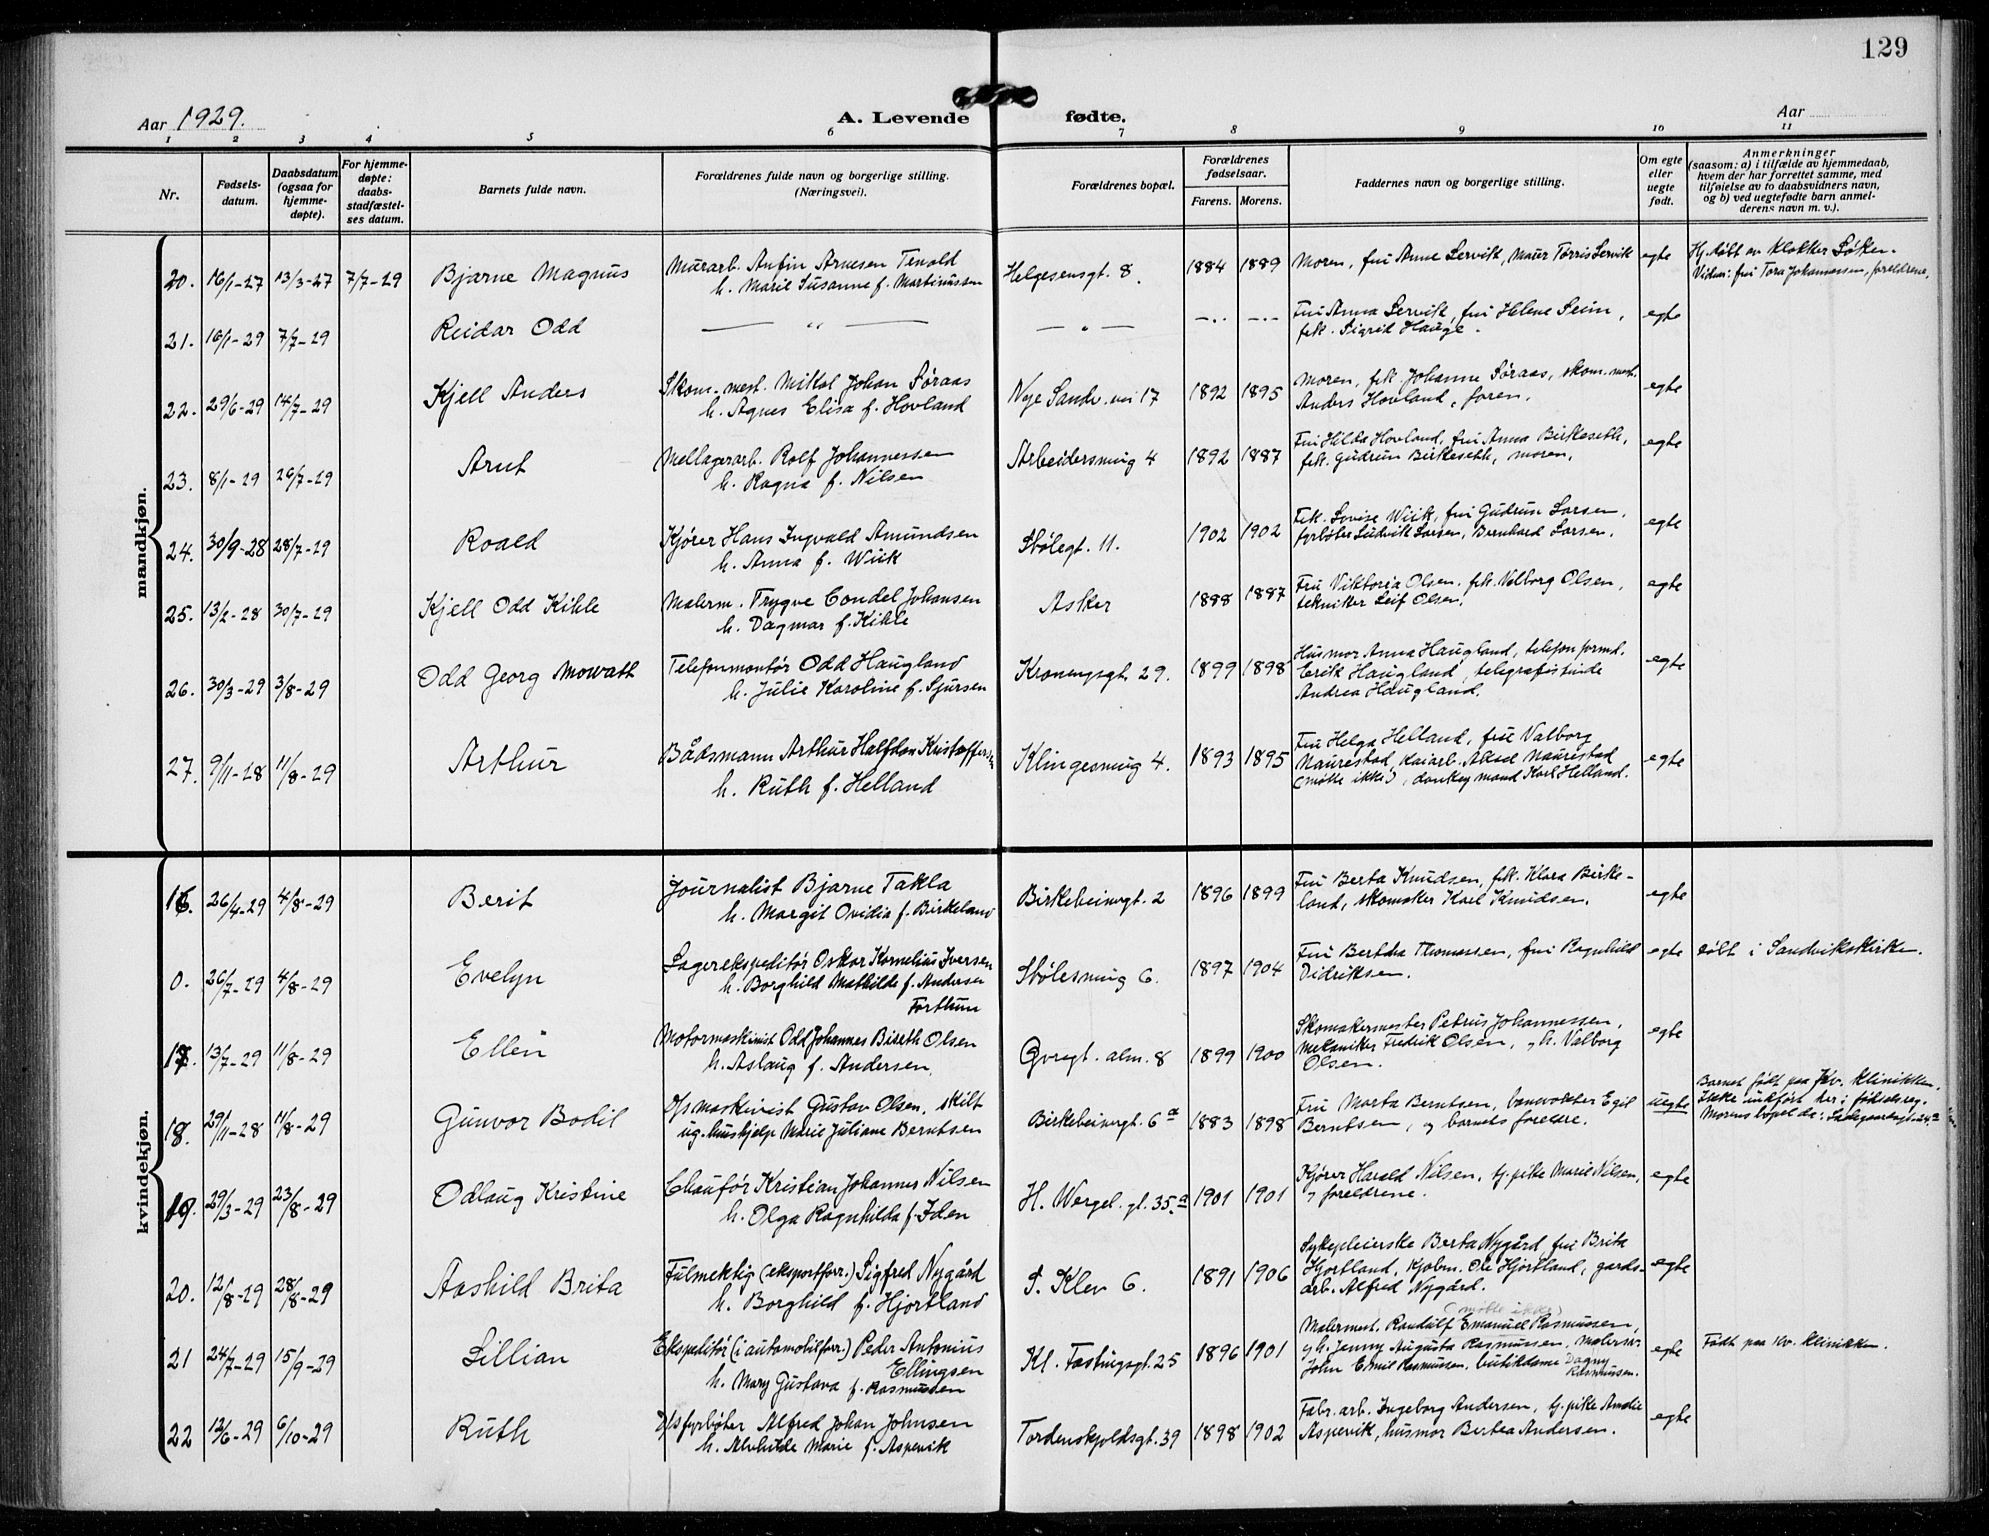 129
Aar 1929.
A. Levende fødte.
Aar
1 2 3 4 5 6 7 8 9 10 11
Nr.
Fødsels-
datum.
Daabsdatum
(ogsaa for
hjemme-
døpte).
For hjemme-
døpte:
daabs-
stadfæstel-
ses datum.
Barnets fulde navn.
Forældrenes fulde navn og borgerlige stilling.
(Næringsvei).
Forældrenes bopæl.
Forældrenes
fødselsaar.
Farens. Morens.
Faddernes navn og borgerlige stilling.
Om egte
eller
uegte
født.
Anmerkninger
(saasom: a) i tilfælde av hjemmedaab,
hvem der har forrettet samme, med
tilføielse av to daabsvidners navn,
og b) ved uegtefødte barn anmel-
derens navn m. v.).
mandkjøn.
20. 16/1-27 13/3-27 7/7-29 Bjarne Magnus
Murarb. Anfin Arnesen Tenold
h. Marie Susanne f. Martinussen
Helgesensgt. 8. 1884 1889
Moren, fru Anne Lervik, murer Torris Lervik
egte
Hj.døbt av klokker Løken.
Vidner: fru Tora Johannessen, foreldrene.
21. 16/1-29 7/7-29 Reidar Odd
— " —
— " — —"— —"—
Fru Anna Lervik, fru Helene Seim,
frk. Sigrid Hauge.
egte
22. 29/6-29 14/7-29 Kjell Anders
Skom.mest. Mikal Johan Søraas
h. Agnes Elisa f. Hovland
Nye Sandv.vei 17 1892 1895
Moren, frk. Johanne Søraas, skom.mest.
Anders Hovland, faren.
egte
23. 8/1-29 26/7-29 Arnt
Mellagerarb. Rolf Johannessen
h. Ragna f. Nilsen
Arbeidersmug 4 1892 1887
Fru Hilda Hovland, fru Anna Birkeseth,
frk. Gudrun Birkeseth, moren.
egte
24. 30/9-28 28/7-29 Roald
Kjører Hans Ingvald Amundsen
h. Anna f. Wiik
Stølegt. 11. 1902 1902
Frk. Lovise Wiik, fru Gudrun Larsen,
fyrbøter Ludvik Larsen, Bernhard Larsen.
egte
25. 13/2-28 30/7-29 Kjell Odd Kihle
Malerm. Trygve Condel Johansen
h. Dagmar f. Kihle
Asker 1888 1887
Fru Viktoria Olsen, frk. Valborg Olsen,
tekniker Leif Olsen.
egte
26. 30/3-29 3/8-29 Odd Georg Mowath
Telefonmontør Odd Haugland
h. Julie Karoline f. Sjursen
Kronengsgt. 29. 1899 1898
Husmor Anna Haugland, telefonformd.
Erik Haugland, telegrafistinde
Andrea Haugland.
egte
27. 9/11-28 11/8-29 Arthur
Bådsmann Arthur Halfdan Kristoffersen
h. Ruth f. Helland
Klingesmug 4. 1893 1895
Fru Helga Helland, fru Valborg
Naurestad, kaiarb. Aksel Naurestad
(møtte ikke), donkeymand Karl Helland.
egte
kvindekjøn.
16. 26/4-29 4/8-29 Berit
Journalist Bjarne Takla
h. Margit Ovidia f. Birkeland
Birkebeinergt. 2 1896 1899
Fru Berta Knudsen, frk. Klara Birke-
land, skomaker Karl Knudsen.
egte
0. 26/7-29 4/8-29 Evelyn
Lagerekspeditør Oskar Kornelius Iversen
h. Borghild Mathilde f. Andersen
Forthun
Stølesmug 6. 1897 1904
Fru Bertha Thomassen, fru Ragnhild
Didriksen.
egte
døbt i Sandvikskirken.
17. 13/7-29 11/8-29 Ellen
Motormaskinist Odd Johannes Biseth Olsen
h. Aslaug f. Andersen.
Øvregt. alm. 8 1899 1900
Skomakermester Petrus Johannessen,
mekaniker Fredrik Olsen, og h. Valborg
Olsen.
egte
18. 29/11-28 11/8-29 Gunvor Bodil
D/s maskinist Gustav Olsen, skilt
ug. hushjelp Marie Juliane Berntsen
Birkebeinergt. 6a 1883 1898
Fru Marta Berntsen, banevokter Egil
Berntsen, og barnets foreldre.
uegte
Barnet født paa Kv. klinikken.
Ikke innført her i fødselsreg.
Morens bopel da: Ladegaardsgt. 24.a
19. 29/3-29 23/8-29 Odlaug Kristine
Chauför Kristian Johannes Nilsen
h. Olga Ragnhilda f. Iden
H. Wergel. gt. 35.a 1901 1901
Kjører Harald Nilsen, tj.pike Marie Nilsen,
og foreldrene.
egte
20. 12/8-29 28/8-29 Aashild Brita
Fulmektig (eksportforr.) Sigfred Nygård
h. Borghild f. Hjortland
S. Klev 6. 1891 1906
Sykepleierske Berta Nygård, fru Brita
Hjortland, kjøbm. Ole Hjortland, gards-
arb. Alfred Nygård.
egte
21 24/7-29 15/9-29 Lillian
Ekspeditör (i automobilforr.) Peder Antonius
Ellingsen
h. Mary Gustava f. Rasmussen
Kl. Fastingsgt. 25 1896 1901
(møtte ikke)
Malermest. Randulf Emanuel Rasmussen,
og h. Jenny Augusta Rasmussen, malersv.
John Emil Rasmussen, butikdame Dagny
Rasmussen.
egte
Født paa kv. klinikken.
22 12/6-29 6/10-29 Ruth
D/s fyrbøter Alfred Johan Johnsen
h. Alvhilde Marie f. Aspevik
Tordenskjoldsgt. 39 1898 1902
Fabr.arb. Ingeborg Andersen, tj.pike Amalie
Aspevik, husmor Bertea Andersen.
egte